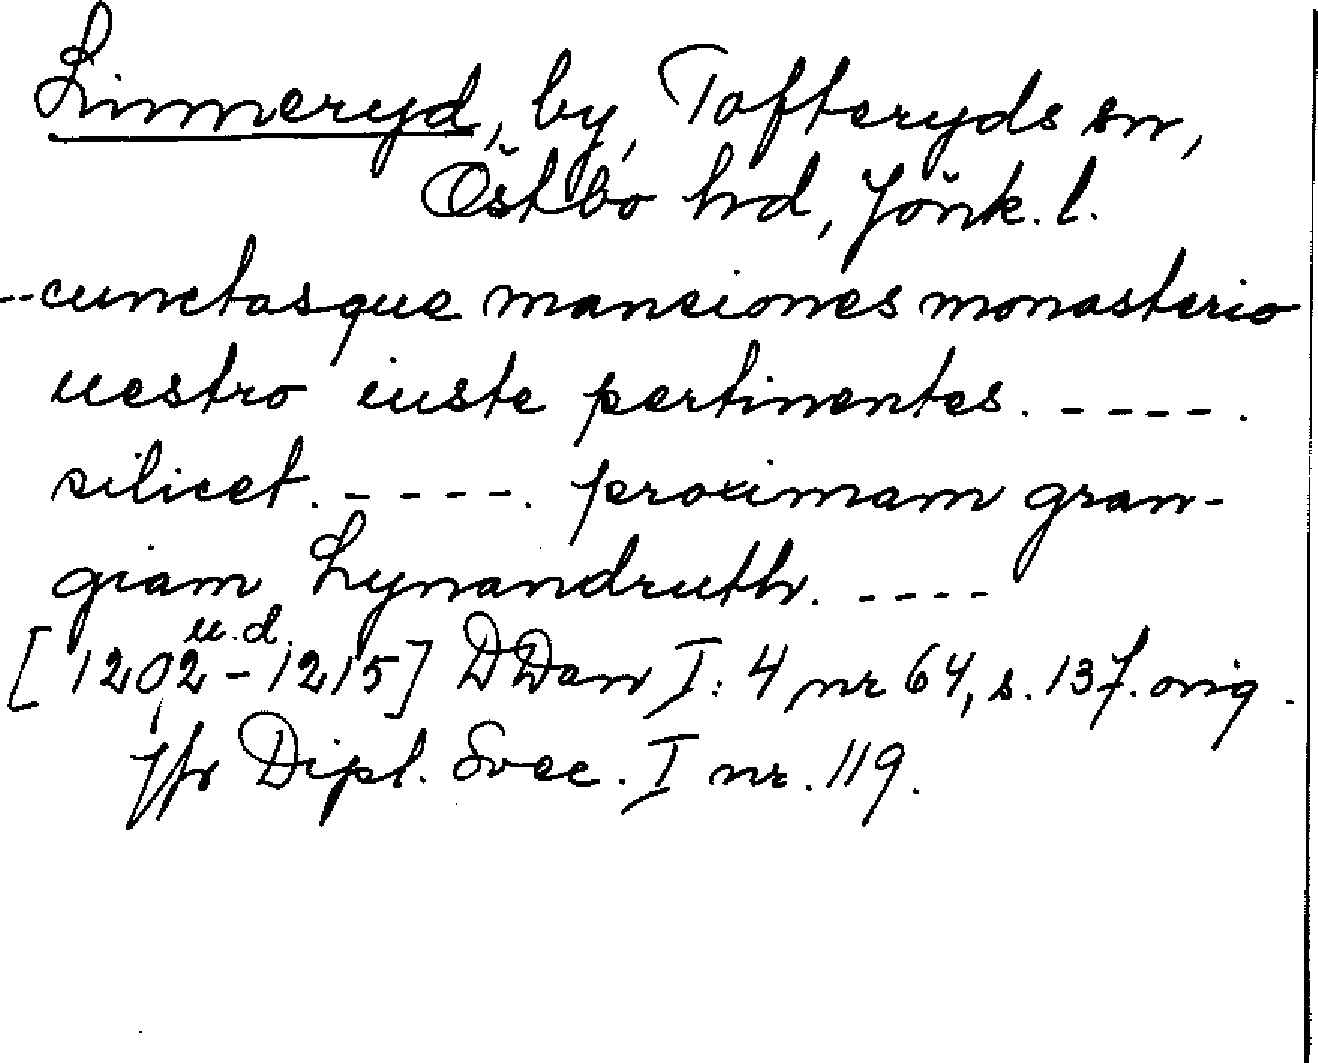 Linneryd, by, Tofteryds sn,
Östbo hd, Jönk. l.
--cunctasque manciones monasterio
uestro iuste pertinentes. ----.
silicet. ----. proximam gran-
giam Lynandruth. ----
u.d.
[1202-1215] DDan I:4 nr 64, s. 137. orig.
jfr Dipl. Svec. I nr. 119.